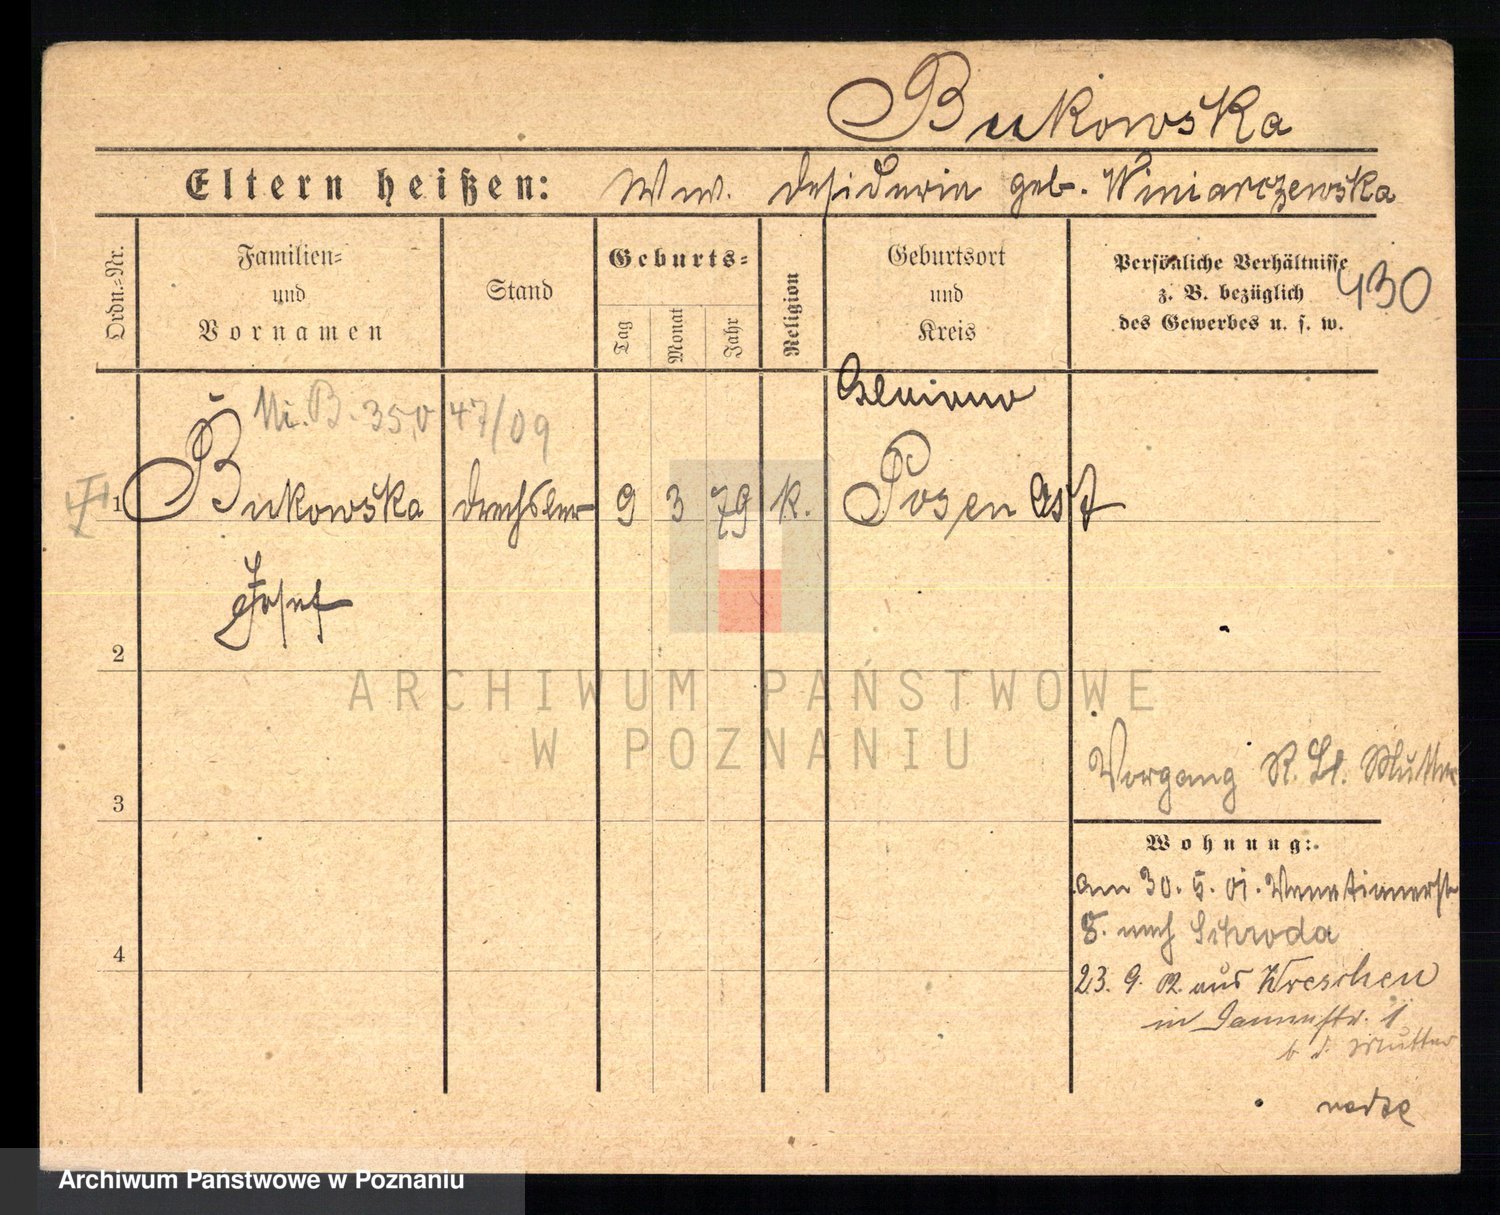 Bukowska
Eltern heißen: Ww. Desideria geb. Winiarczewska
Ordn.-Nr.
Familien-
und
Vornamen
Stand
Geburts-
Tag
Monat
Jahr
Religion
Geburtsort
und
Kreis
Persönliche Verhältnisse
z. B. bezüglich
des Gewerbes u. s. w.
430
B. 350 47/09
1 Bukowska Drechsler 9 3 79 K. Posen Ost
Josef
2
3
4
Vorgang Mutter
Wohnung:
am 30. 5. 01. Venetianerstr
8. nach Schroda
23. 9. 02. aus Wreschen
in 1
b d. Mutter
ARCHIWUM PAŃSTWOWE
W POZNANIU
Archiwum Państwowe w Poznaniu